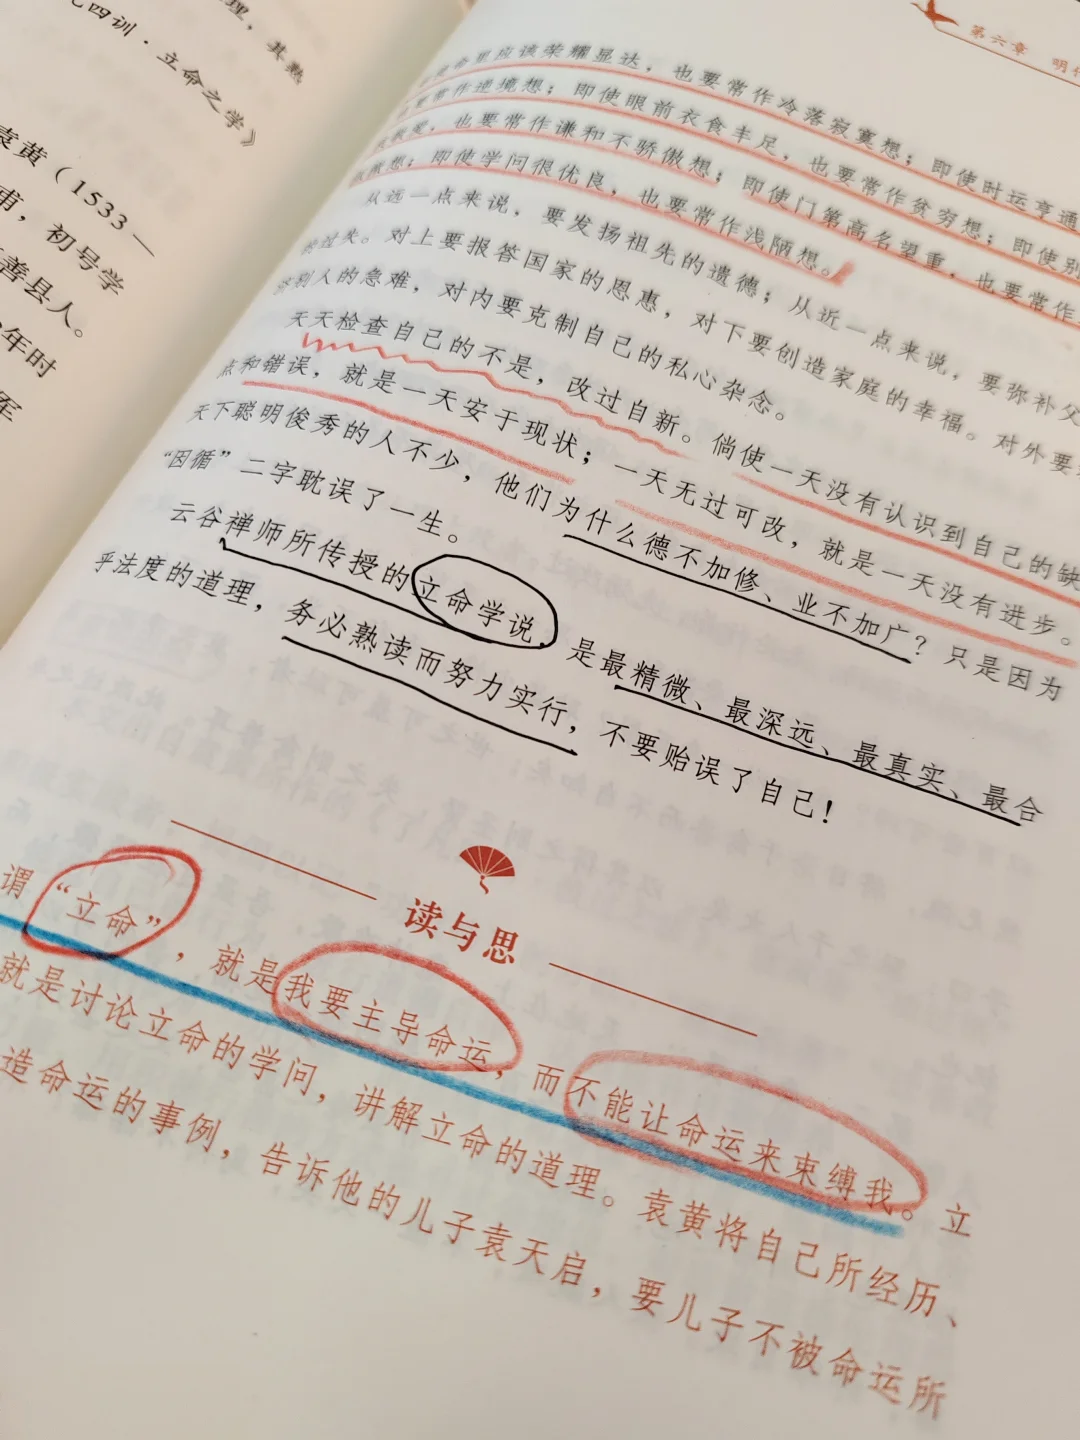 理，其熟
四训·立命之学》
袁黄（1533—
甫，初号学
善县人。
年时
军
第六章 明
命里应该荣耀显达，也要常作冷落寂寞想；即使时运亨通
要常作逆境想；即使眼前衣食丰足，也要常作贫穷想；即使别
敬爱，也要常作谦和不骄傲想；即使门第高名望重，也要常作
想；即使学问很优良，也要常作浅陋想。
从远一点来说，要发扬祖先的遗德；从近一点来说，要弥补父
过失。对上要报答国家的恩惠，对下要创造家庭的幸福。对外要
别人的急难，对内要克制自己的私心杂念。
天天检查自己的不是，改过自新。倘使一天没有认识到自己的缺
点和错误，就是一天安于现状；一天无过可改，就是一天没有进步。
天下聪明俊秀的人不少，他们为什么德不加修、业不加广？只是因为
“因循”二字耽误了一生。
云谷禅师所传授的立命学说，是最精微、最深远、最真实、最合
乎法度的道理，务必熟读而努力实行，不要贻误了自己！
读与思
谓“立命”，就是我要主导命运，而不能让命运来束缚我。立
就是讨论立命的学问，讲解立命的道理。袁黄将自己所经历、
造命运的事例，告诉他的儿子袁天启，要儿子不被命运所